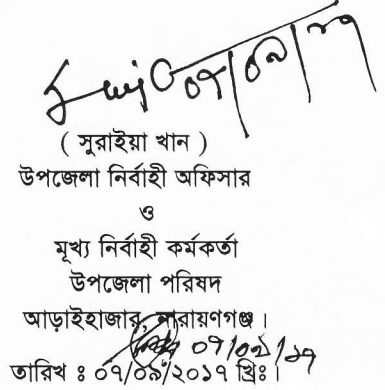 ০৭/০৯/১৭
( সুরাইয়া খান )
উপজেলা নির্বাহী অফিসার
ও
মূখ্য নির্বাহী কর্মকর্তা
উপজেলা পরিষদ
আড়াইহাজার, নারায়ণগঞ্জ।
০৭/০৯/১৭
তারিখ ঃ ০৭/০৯/২০১৭ খ্রিঃ।